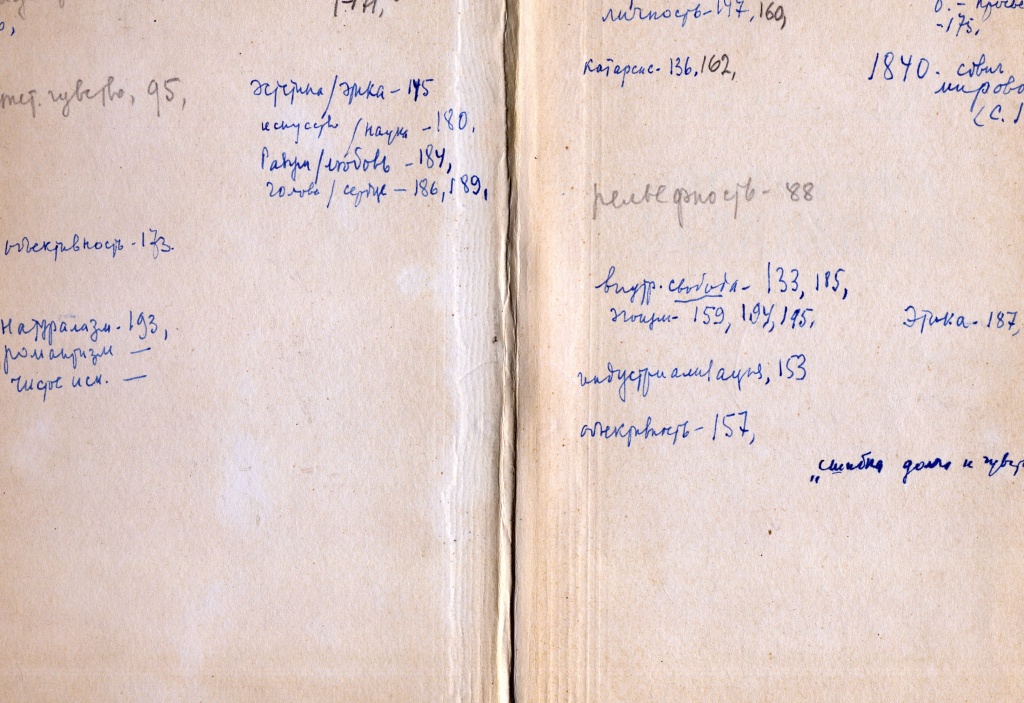 чувство, 95,
эстетика/этика - 175
искусство/наука - 180,
Разум/любовь - 184,
голова/сердце - 186, 189,
объективность - 173.
Натурализм - 193,
романтизм —
чистое иск. —
личность - 147, 160,
-175,
катарсис - 136, 162,
1840. сдвиг
мирово
(С. 1
рельефность - 88
внутр. свобода - 133, 185,
эгоизм - 159, 194, 195,
Этика - 187,
индустриализация, 153
объективность - 157,
"ошибка долга и чувст